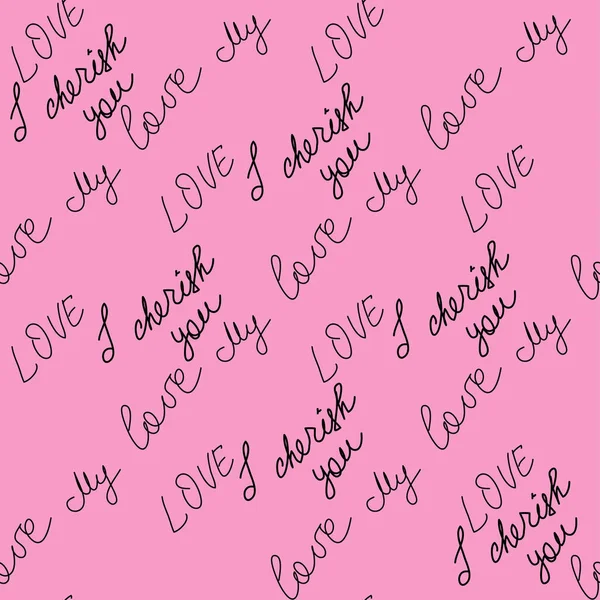 LOVE
I cherish
you
love My
LOVE
love My
I cherish
you
love My
LOVE
love My
LOVE
I cherish
you
I cherish
you
LOVE
love My
LOVE
love My
I cherish
you
love My
LOVE
love My
LOVE
I cherish
you